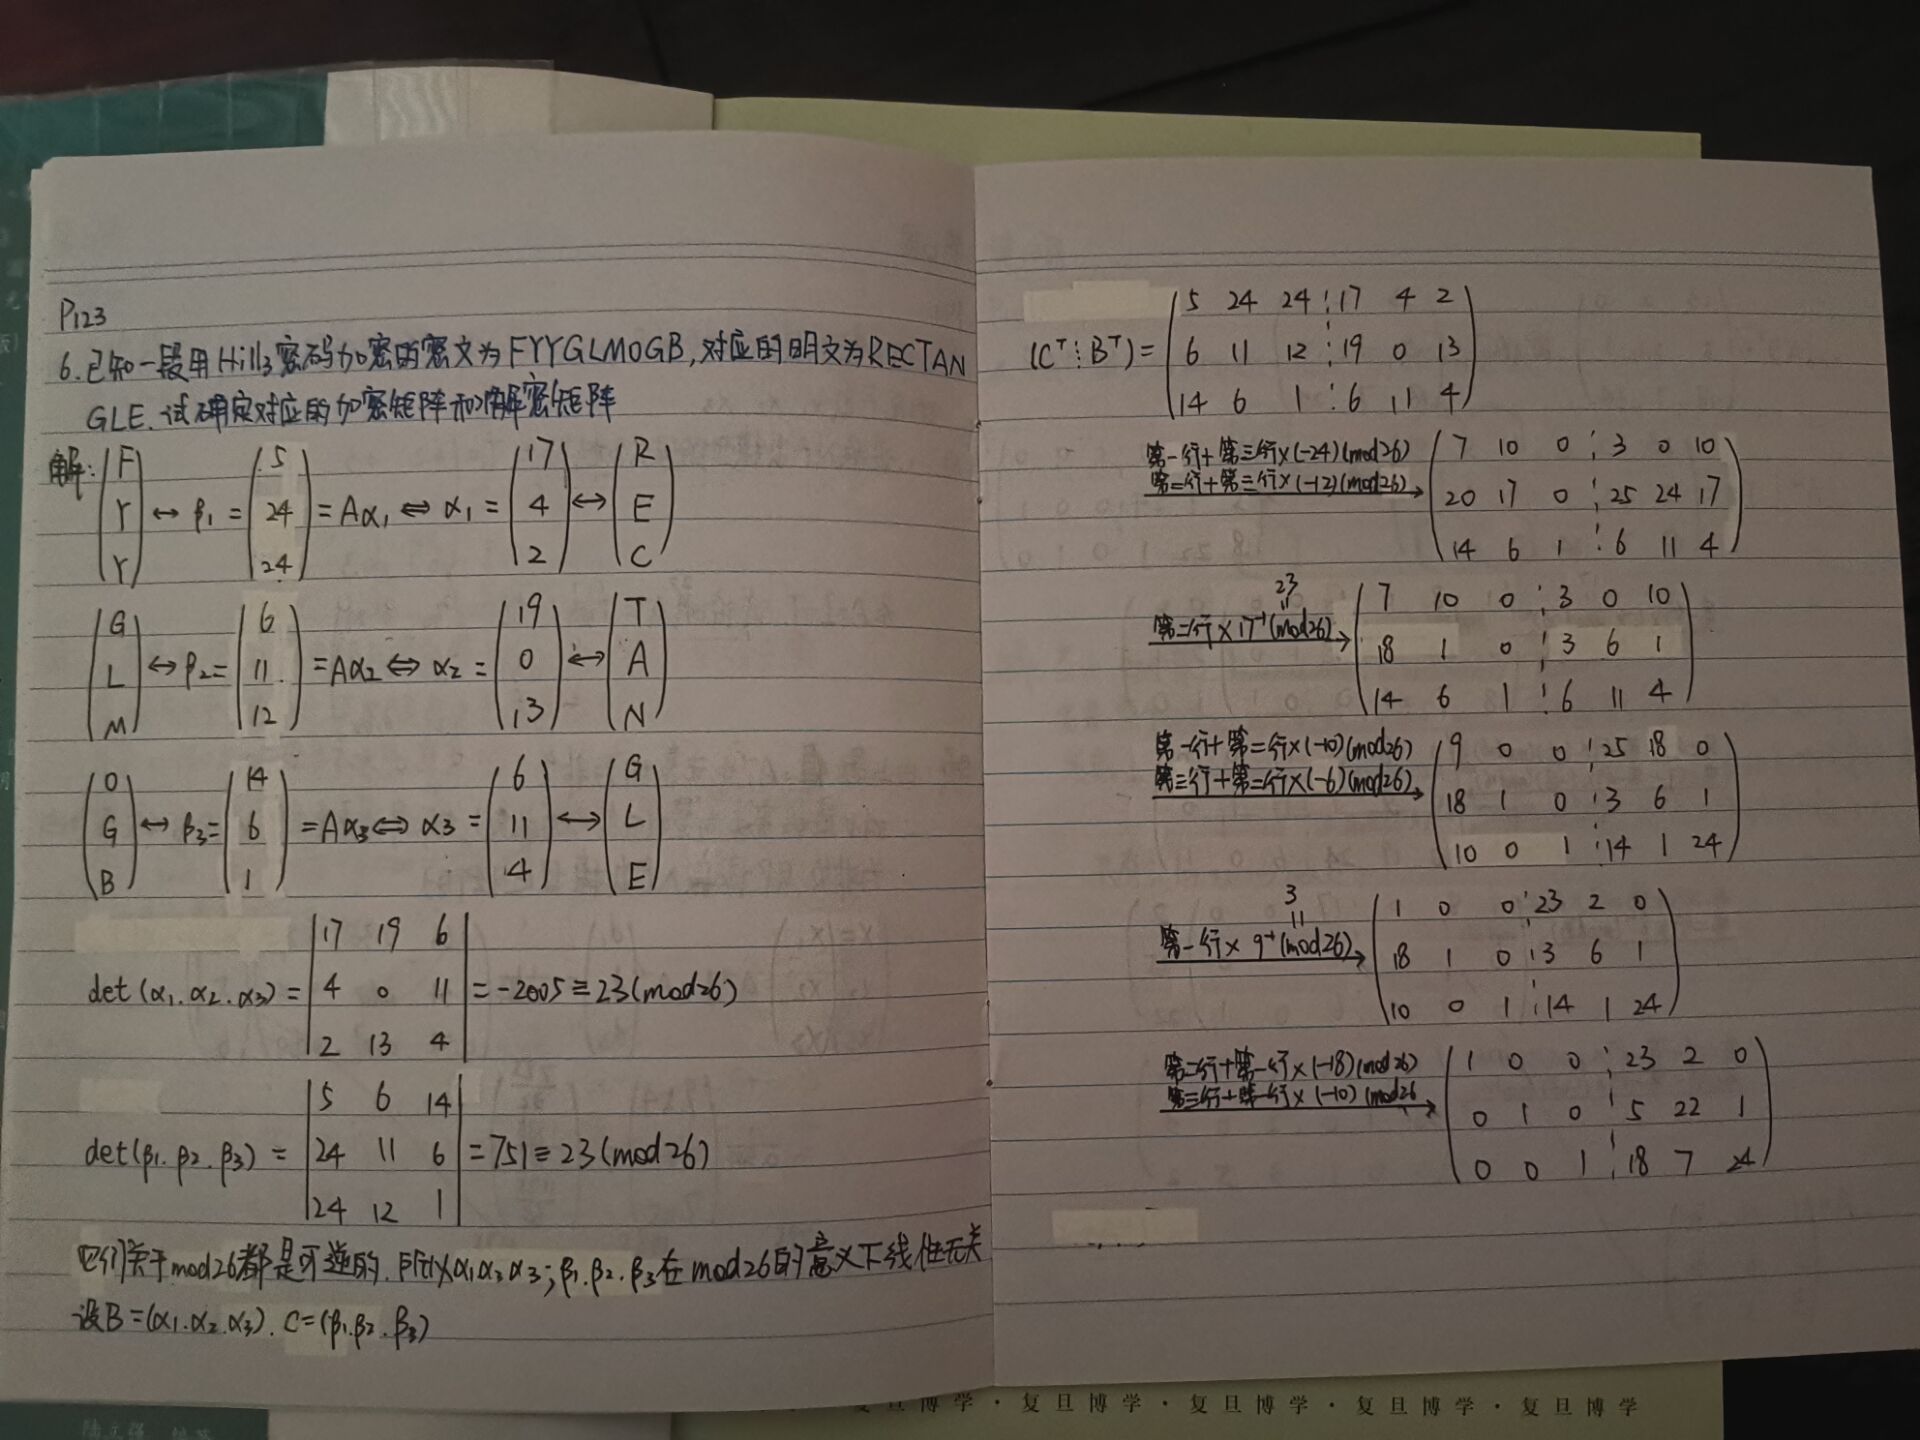 P123
6.已知一段用Hill3密码加密的密文为FYYGLMOGB,对应的明文为RECTAN
GLE.试确定对应的加密矩阵和解密矩阵
解:
(F Y Y) ↔ β1 = (5 24 24) = Aα1 ⇔ α1 = (17 4 2) ↔ (R E C)
(G L M) ↔ β2 = (6 11 12) = Aα2 ⇔ α2 = (19 0 13) ↔ (T A N)
(O G B) ↔ β3 = (14 6 1) = Aα3 ⇔ α3 = (6 11 4) ↔ (G L E)
17 19 6
det(α1.α2.α3) = 4 0 11 = -2005 ≡ 23(mod26)
2 13 4
5 6 14
det(β1.β2.β3) = 24 11 6 = 751 ≡ 23(mod26)
24 12 1
它们关于mod26都是可逆的.所以α1α2α3;β1.β2.β3在mod26的意义下线性无关
设B=(α1.α2.α3).C=(β1.β2.β3)
5 24 24 ⋮ 17 4 2
(Cᵀ⋮Bᵀ)= 6 11 12 ⋮ 19 0 13
14 6 1 ⋮ 6 11 4
第一行+第三行×(-24)(mod26)
第二行+第三行×(-12)(mod26)
7 10 0 ⋮ 3 0 10
20 17 0 ⋮ 25 24 17
14 6 1 ⋮ 6 11 4
23
॥
第二行×17⁻¹(mod26)
7 10 0 ⋮ 3 0 10
18 1 0 ⋮ 3 6 1
14 6 1 ⋮ 6 11 4
第一行+第二行×(-10)(mod26)
第三行+第二行×(-6)(mod26)
9 0 0 ⋮ 25 18 0
18 1 0 ⋮ 3 6 1
10 0 1 ⋮ 14 1 24
3
॥
第一行×9⁻¹(mod26)
1 0 0 ⋮ 23 2 0
18 1 0 ⋮ 3 6 1
10 0 1 ⋮ 14 1 24
第二行+第一行×(-18)(mod26)
第三行+第一行×(-10)(mod26
1 0 0 ⋮ 23 2 0
0 1 0 ⋮ 5 22 1
0 0 1 ⋮ 18 7 24
复旦博学·复旦博学·复旦博学·复旦博学·复旦博学